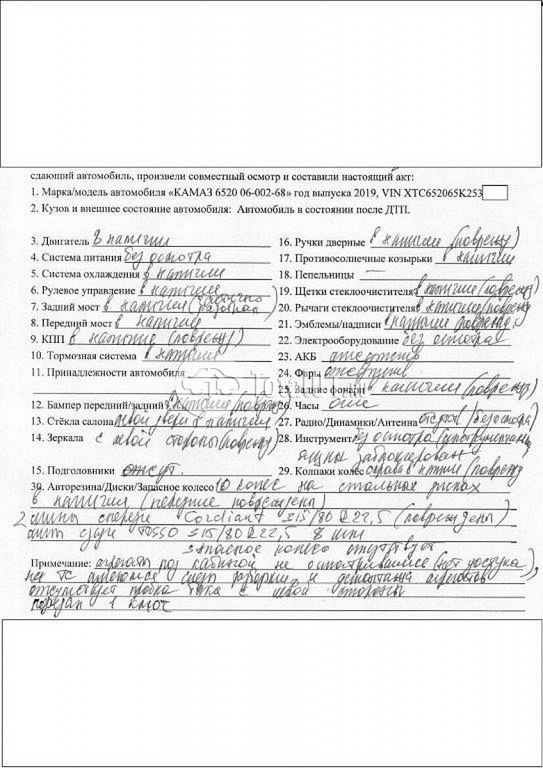 сдающий автомобиль, произвели совместный осмотр и составили настоящий акт:
1. Марка/модель автомобиля «КАМАЗ 6520 06-002-68» год выпуска 2019, VIN XTC652065K253
2. Кузов и внешнее состояние автомобиля: Автомобиль в состоянии после ДТП.
3. Двигатель в наличии
4. Система питания без осмотра
5. Система охлаждения в наличии
6. Рулевое управление в наличии
7. Задний мост в наличии (частично разобран)
8. Передний мост в наличии
9. КПП в наличии (поврежд)
10. Тормозная система в наличии
11. Принадлежности автомобиля
12. Бампер передний/задний в наличии (поврежд
13. Стёкла салона левой двери в наличии
14. Зеркала с левой стороны (поврежд)
15. Подголовники отсут.
16. Ручки дверные в наличии (поврежд)
17. Противосолнечные козырьки в наличии
18. Пепельницы —
19. Щетки стеклоочистителя в наличии (поврежд)
20. Рычаги стеклоочистителя в наличии (поврежд
21. Эмблемы/надписи в наличии (поврежд)
22. Электрооборудование без осмотра
23. АКБ
24. Фары
25. Задние фонари в наличии (поврежд)
26. Часы
27. Радио/Динамики/Антенна (без осмотра)
28. Инструмент без осмотра (инструментальн
ящик заблокирован
29. Колпаки колёс справа в наличии (поврежд
30. Авторезина/Диски/Запасное колесо 10 колес на стальных дисках
в наличии (передние повреждены)
2 шины спереди Cordiant 315/80 R22,5 (повреждены)
шин сзади 315/80 R22,5 8 шт
запасное колесо отсутствует
Примечание: агрегаты под кабиной не осматривались (нет доступа),
на ТС имеются агрегатов
отсутствует пробка бака с левой стороны
передан 1 ключ